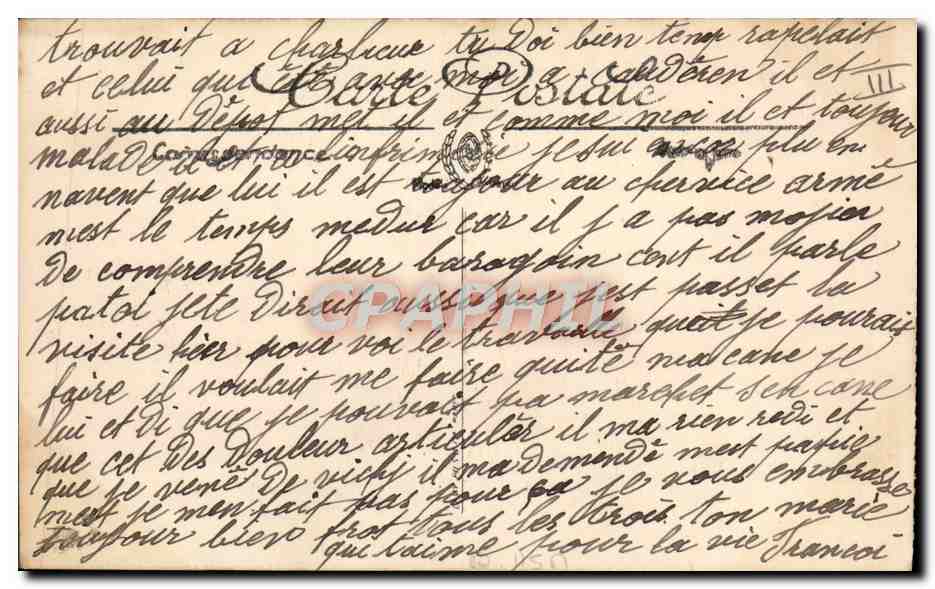 trouvait a charlieue ty doi bien temp rapelait
et celui qui ete avec moi a couderen il et
III
Carte Postale
aussi au Dépot met il et comme moi il et toujour
malade il et a je sui plu en
Correspondance
navent que lui il est toujour au chervice armé
mest le temps me dur car il j a pas mojien
de comprendre leur baragoin cest il parle
patoi je te dirait aussi que jest passet la
CRAPHIL
visite hier pour voi le travaille quit je pourait
faire il voulait me faire quité ma cane je
lui et di que je pouvait pa marchet sen cane
que cet des douleur articuler il ma rien redi et
que je vené de vichj il ma demendé mest papié
mest je men fait pas pour ça je vous embrasse
toujour bien frot tous les trois ton marie
qui taime pour la vie Francoi